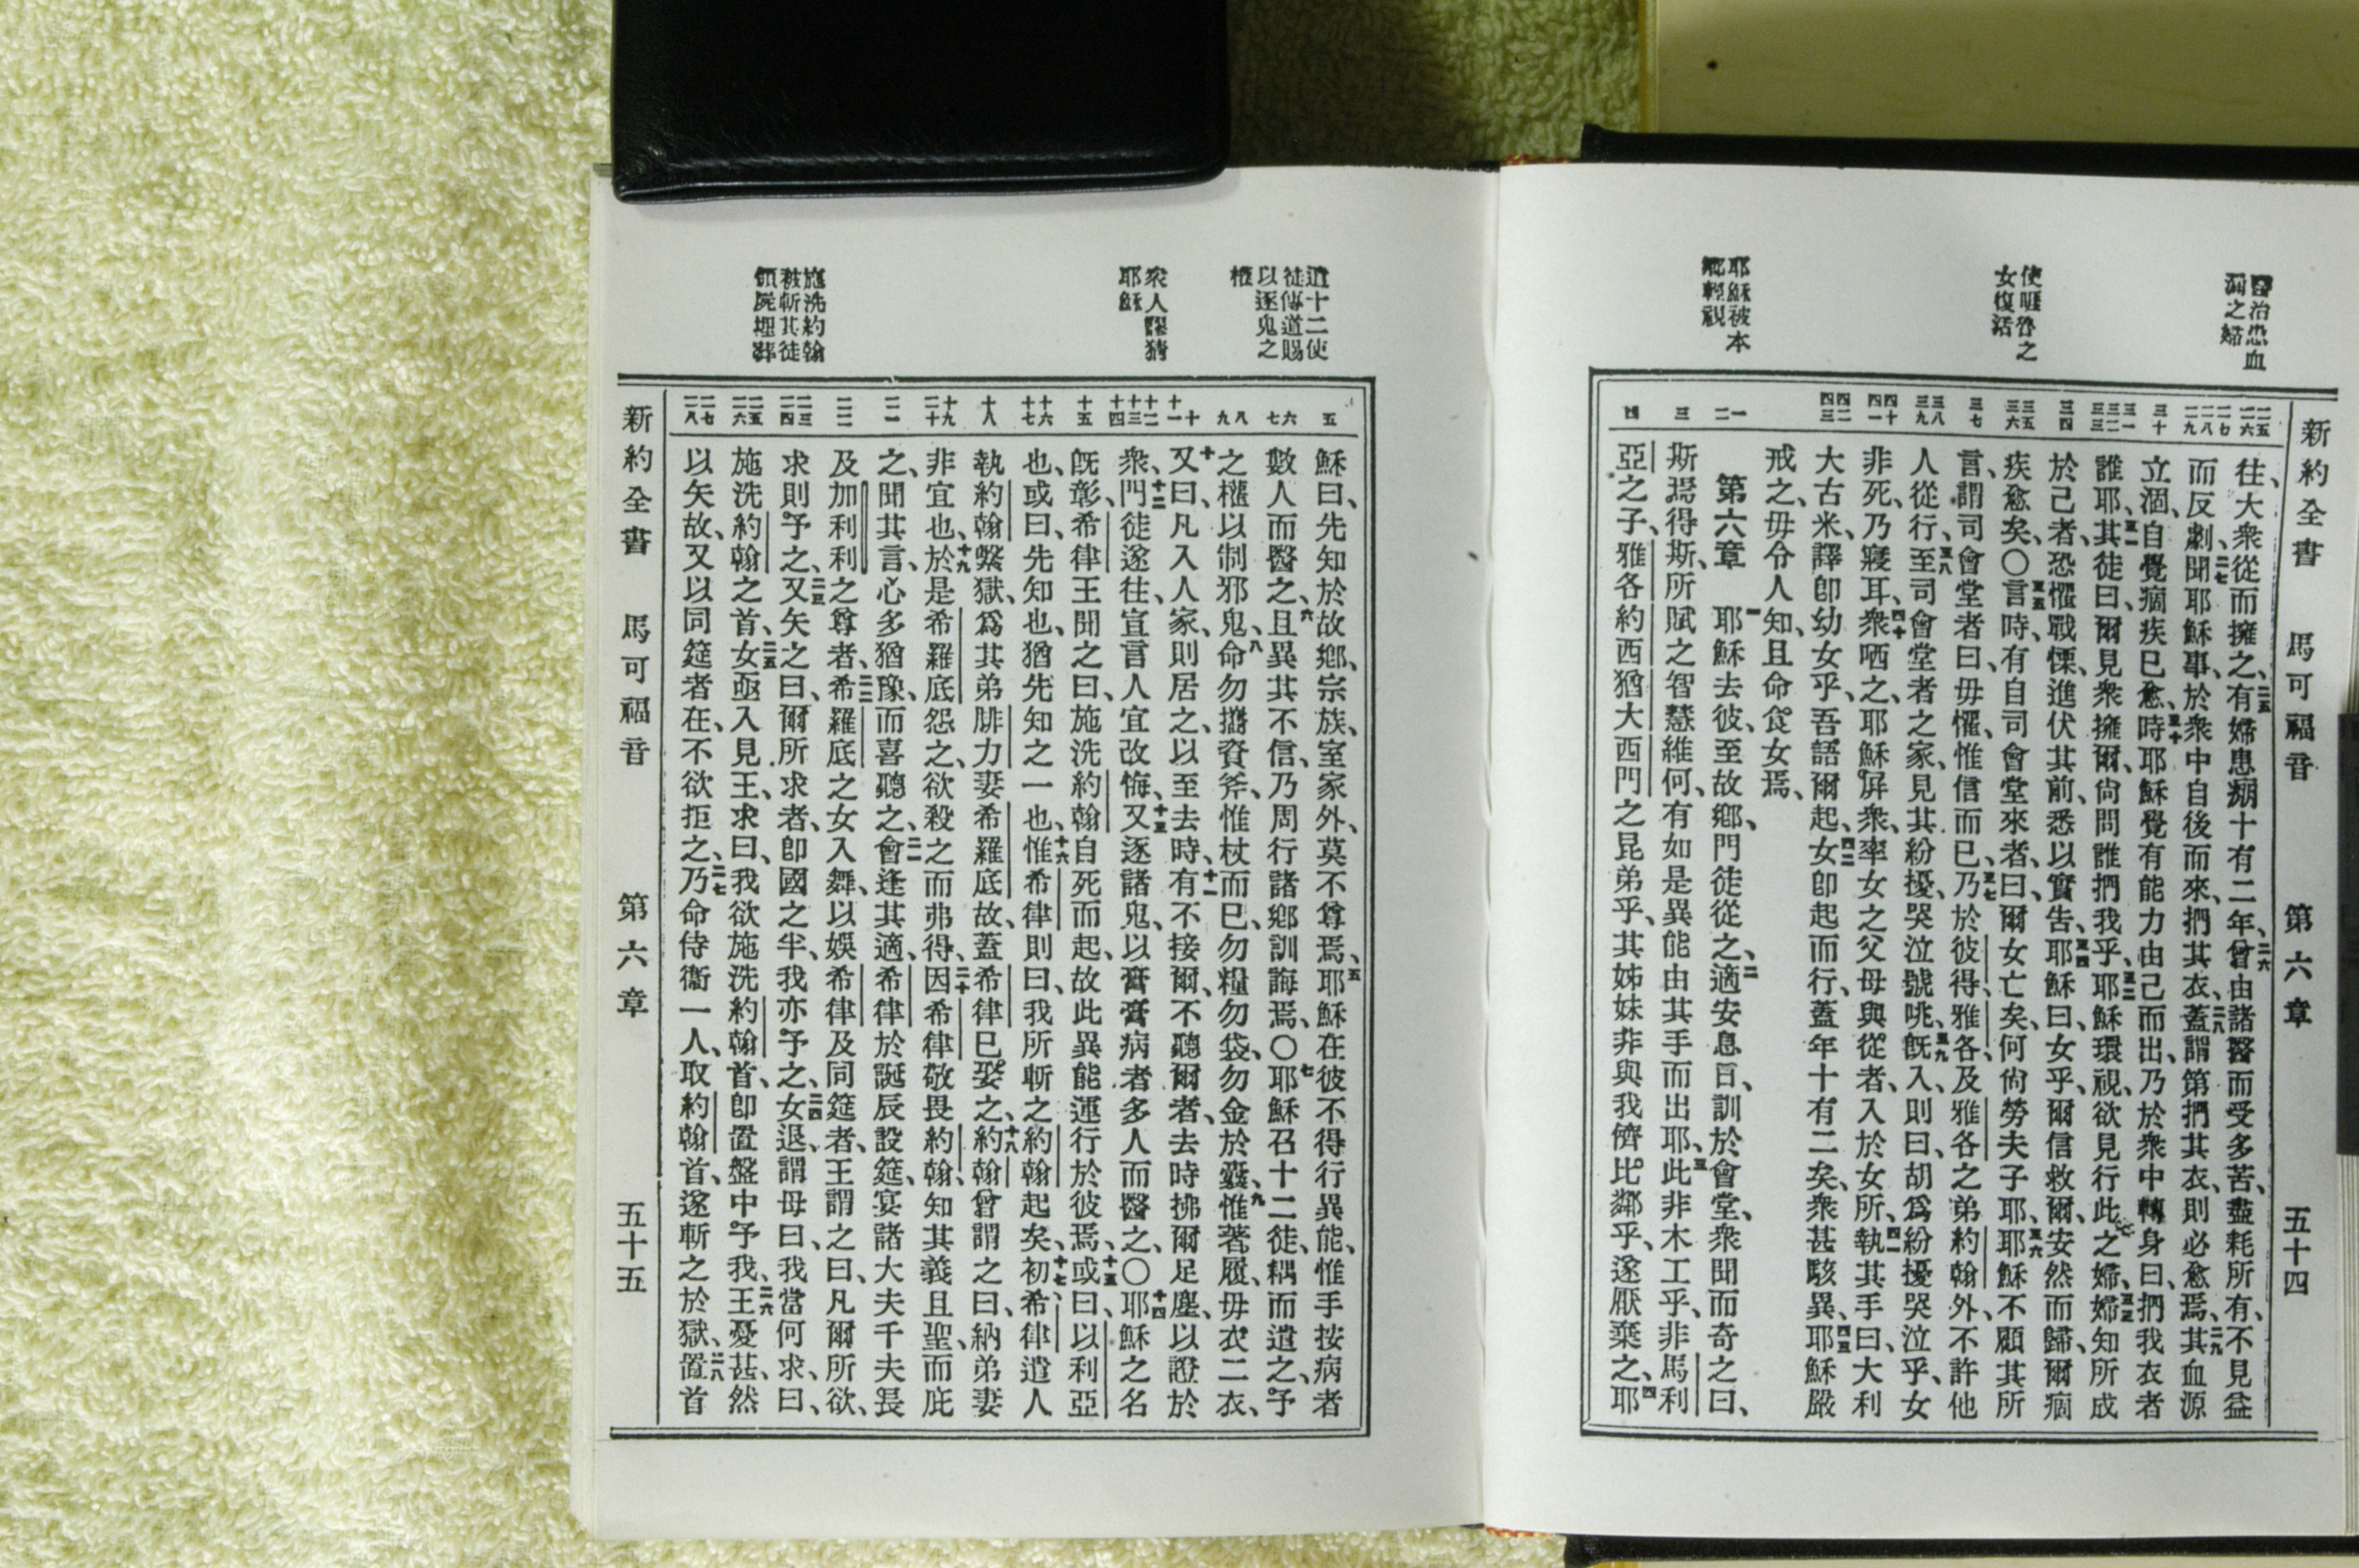 新約全書 馬可福音 第六章 五十四
醫治患血
漏之婦
使睚魯之
女復活
耶穌被本
鄉輕視
二五 二六
二七 二八 二九
三十
三一 三二 三三
三四
三五 三六
三七
三八 三九
四十 四一
四二 四三
一 二
三
四
往、大衆從而擁之、二五有婦患漏十有二年、二六曾由諸醫而受多苦、盡耗所有、不見益
而反劇、二七聞耶穌事、於衆中自後而來、捫其衣、二八蓋謂第捫其衣、則必愈焉、二九其血源
立涸、自覺痼疾已愈、三十時耶穌覺有能力由己而出、乃於衆中轉身曰、捫我衣者
誰耶、三一其徒曰、爾見衆擁爾、尙問誰捫我乎、三二耶穌環視、欲見行此之婦、三三婦知所成
於己者、恐懼戰慄、進伏其前、悉以實吿、三四耶穌曰、女乎、爾信救爾、安然而歸、爾痼
疾愈矣、〇三五言時、有自司會堂來者、曰、爾女亡矣、何尙勞夫子耶、三六耶穌不顧其所
言、謂司會堂者曰、毋懼、惟信而已、三七乃於彼得、雅各、及雅各之弟約翰外、不許他
人從行、三八至司會堂者之家、見其紛擾、哭泣號咷、三九旣入、則曰、胡爲紛擾哭泣乎、女
非死、乃寢耳、四十衆哂之、耶穌屏衆、率女之父母與從者、入於女所、四一執其手曰、大利
大古米、譯卽幼女乎、吾語爾起、四二女卽起而行、蓋年十有二矣、衆甚駭異、四三耶穌嚴
戒之、毋令人知、且命食女焉、
第六章 一耶穌去彼、至故鄉、門徒從之、二適安息日、訓於會堂、衆聞而奇之曰、
斯焉得斯、所賦之智慧維何、有如是異能由其手而出耶、三此非木工乎、非馬利
亞之子、雅各約西猶大西門之昆弟乎、其姊妹非與我儕比鄰乎、遂厭棄之、四耶
遣十二使
徒傳道賜
以逐鬼之
權
衆人謬猜
耶穌
施洗約翰
被斬其徒
領屍埋葬
五
六 七
八 九
十 十一
十二 十三 十四
十五
十六 十七
十八
十九 二十
二一
二二
二三 二四
二五 二六
二七 二八
穌曰、先知於故鄉、宗族、室家外、莫不尊焉、五耶穌在彼不得行異能、惟手按病者
數人而醫之、六且異其不信、乃周行諸鄉訓誨焉、〇七耶穌召十二徒、耦而遣之、予
之權以制邪鬼、八命勿攜資斧、惟杖而已、勿糧勿袋、勿金於囊、九惟著履、毋衣二衣、
十又曰、凡入人家、則居之、以至去時、十一有不接爾、不聽爾者、去時拂爾足塵、以證於
衆、十二門徒遂往、宣言人宜改悔、十三又逐諸鬼、以膏膏病者多人而醫之、〇十四耶穌之名
旣彰、希律王聞之曰、施洗約翰自死而起、故此異能運行於彼焉、十五或曰、以利亞
也、或曰、先知也、猶先知之一也、十六惟希律則曰、我所斬之約翰起矣、十七初、希律遣人
執約翰繫獄、爲其弟腓力妻希羅底故、蓋希律已娶之、十八約翰曾謂之曰、納弟妻
非宜也、十九於是希羅底怨之、欲殺之而弗得、二十因希律敬畏約翰、知其義且聖、而庇
之、聞其言、心多猶豫、而喜聽之、二一會逢其適、希律於誕辰設筵、宴諸大夫千夫長
及加利利之尊者、二二希羅底之女入舞、以娛希律及同筵者、王謂之曰、凡爾所欲、
求則予之、二三又矢之曰、爾所求者、卽國之半、我亦予之、二四女退、謂母曰、我當何求、曰、
施洗約翰之首、二五女亟入見王、求曰、我欲施洗約翰首、卽置盤中予我、二六王憂甚、然
以矢故、又以同筵者在、不欲拒之、二七乃命侍衞一人、取約翰首、遂斬之於獄、二八置首
新約全書 馬可福音 第六章 五十五